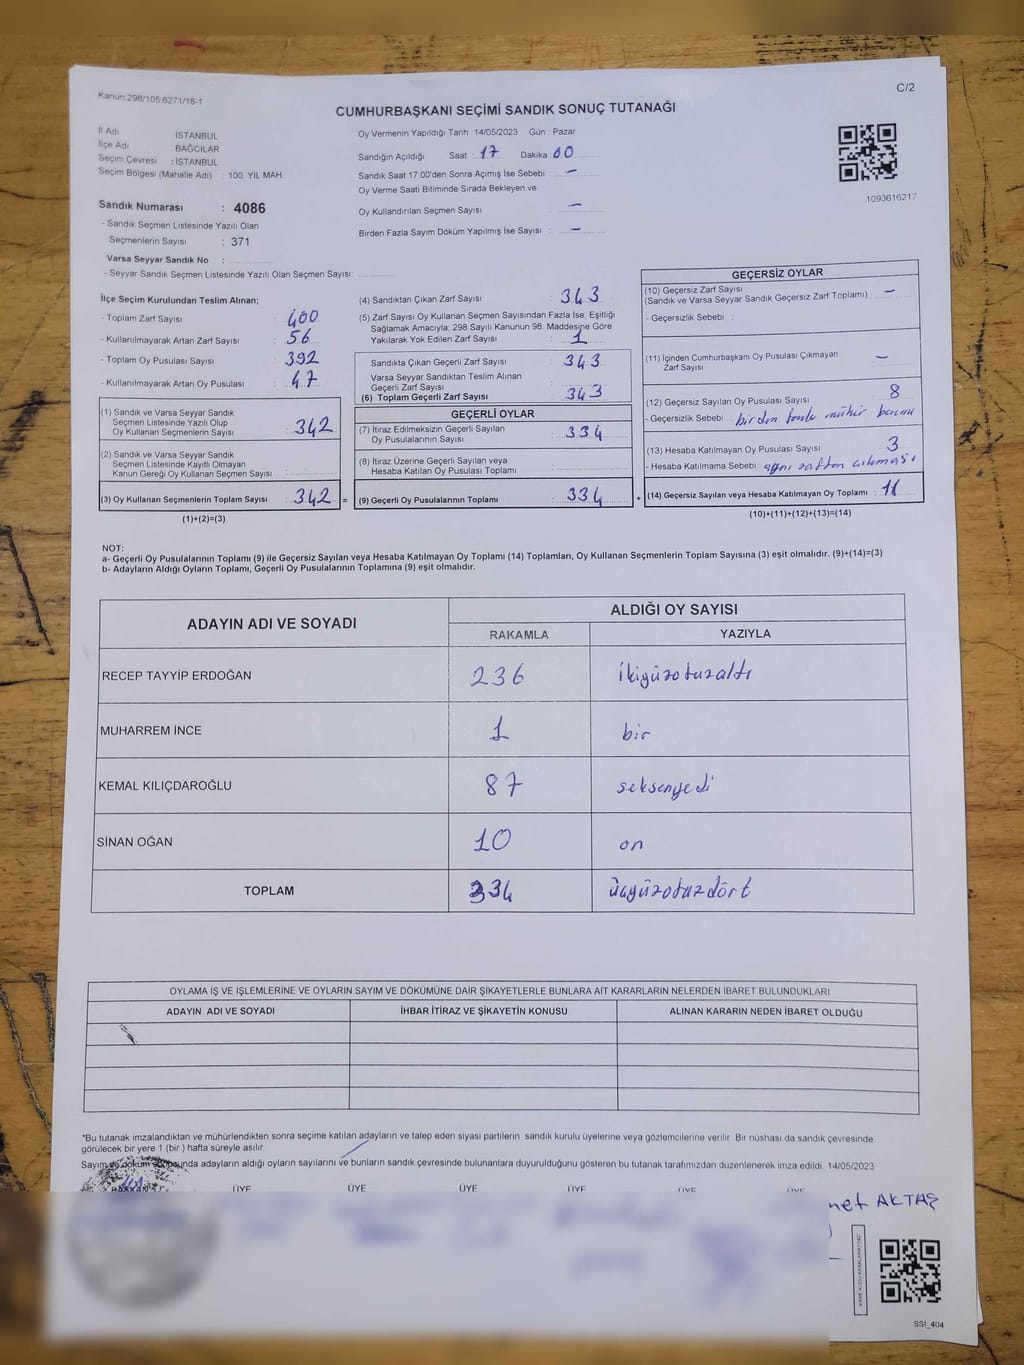 Kanun:298/105:6271/18-1
C/2
CUMHURBAŞKANI SEÇİMİ SANDIK SONUÇ TUTANAĞI
İl Adı İSTANBUL
İlçe Adı BAĞCILAR
Seçim Çevresi : İSTANBUL
Seçim Bölgesi (Mahalle Adı) : 100. YIL MAH
Sandık Numarası : 4086
- Sandık Seçmen Listesinde Yazılı Olan
Seçmenlerin Sayısı : 371
Varsa Seyyar Sandık No :
- Seyyar Sandık Seçmen Listesinde Yazılı Olan Seçmen Sayısı:
Oy Vermenin Yapıldığı Tarih :14/05/2023 Gün : Pazar
Sandığın Açıldığı Saat : 17 Dakika 00
Sandık Saat 17:00'den Sonra Açımış İse Sebebi : –
Oy Verme Saati Bitiminde Sırada Bekleyen ve
Oy Kullandırılan Seçmen Sayısı : –
Birden Fazla Sayım Döküm Yapılmış İse Sayısı : –
1093616217
İlçe Seçim Kurulundan Teslim Alınan;
- Toplam Zarf Sayısı : 400
- Kullanılmayarak Artan Zarf Sayısı : 56
- Toplam Oy Pusulası Sayısı : 392
- Kullanılmayarak Artan Oy Pusulası : 47
(1) Sandık ve Varsa Seyyar Sandık
Seçmen Listesinde Yazılı Olup
Oy Kullanan Seçmenlerin Sayısı : 342
(2) Sandık ve Varsa Seyyar Sandık
Seçmen Listesinde Kayıtlı Olmayan
Kanun Gereği Oy Kullanan Seçmen Sayısı :
(3) Oy Kullanan Seçmenlerin Toplam Sayısı : 342 =
(1)+(2)=(3)
(4) Sandıktan Çıkan Zarf Sayısı : 343
(5) Zarf Sayısı Oy Kullanan Seçmen Sayısından Fazla İse, Eşitliği
Sağlamak Amacıyla; 298 Sayılı Kanunun 98. Maddesine Göre
Yakılarak Yok Edilen Zarf Sayısı : 1
Sandıkta Çıkan Geçerli Zarf Sayısı : 343
Varsa Seyyar Sandıktan Teslim Alınan
Geçerli Zarf Sayısı
(6) Toplam Geçerli Zarf Sayısı : 343
GEÇERLİ OYLAR
(7) İtiraz Edilmeksizin Geçerli Sayılan
Oy Pusulalarının Sayısı : 334
(8) İtiraz Üzerine Geçerli Sayılan veya
Hesaba Katılan Oy Pusulası Toplamı :
(9) Geçerli Oy Pusulalarının Toplamı : 334 +
GEÇERSİZ OYLAR
(10) Geçersiz Zarf Sayısı
(Sandık ve Varsa Seyyar Sandık Geçersiz Zarf Toplamı) : –
- Geçersizlik Sebebi :
(11) İçinden Cumhurbaşkanı Oy Pusulası Çıkmayan
Zarf Sayısı : –
(12) Geçersiz Sayılan Oy Pusulası Sayısı : 8
- Geçersizlik Sebebi : birden fazla mühür
(13) Hesaba Katılmayan Oy Pusulası Sayısı : 3
- Hesaba Katılmama Sebebi : aynı zarftan çıkması
(14) Geçersiz Sayılan veya Hesaba Katılmayan Oy Toplamı : 11
(10)+(11)+(12)+(13)=(14)
NOT:
a- Geçerli Oy Pusulalarının Toplamı (9) ile Geçersiz Sayılan veya Hesaba Katılmayan Oy Toplamı (14) Toplamları, Oy Kullanan Seçmenlerin Toplam Sayısına (3) eşit olmalıdır. (9)+(14)=(3)
b- Adayların Aldığı Oyların Toplamı, Geçerli Oy Pusulalarının Toplamına (9) eşit olmalıdır.
ADAYIN ADI VE SOYADI ALDIĞI OY SAYISI
RAKAMLA YAZIYLA
RECEP TAYYİP ERDOĞAN 236 ikiyüzotuzaltı
MUHARREM İNCE 1 bir
KEMAL KILIÇDAROĞLU 87 seksenyedi
SİNAN OĞAN 10 on
TOPLAM 334 üçyüzotuzdört
OYLAMA İŞ VE İŞLEMLERİNE VE OYLARIN SAYIM VE DÖKÜMÜNE DAİR ŞİKAYETLERLE BUNLARA AİT KARARLARIN NELERDEN İBARET BULUNDUKLARI
ADAYIN ADI VE SOYADI İHBAR İTİRAZ VE ŞİKAYETİN KONUSU ALINAN KARARIN NEDEN İBARET OLDUĞU
*Bu tutanak imzalandıktan ve mühürlendikten sonra seçime katılan adayların ve talep eden siyasi partilerin sandık kurulu üyelerine veya gözlemcilerine verilir. Bir nüshası da sandık çevresinde
görülecek bir yere 1 (bir) hafta süreyle asılır.
Sayım ve döküm sonunda adayların aldığı oyların sayılarını ve bunların sandık çevresinde bulunanlara duyurulduğunu gösteren bu tutanak tarafımızdan düzenlenerek imza edildi. 14/05/2023
BAŞKAN ÜYE ÜYE ÜYE ÜYE ÜYE ÜYE
AKTAŞ
SSI_404